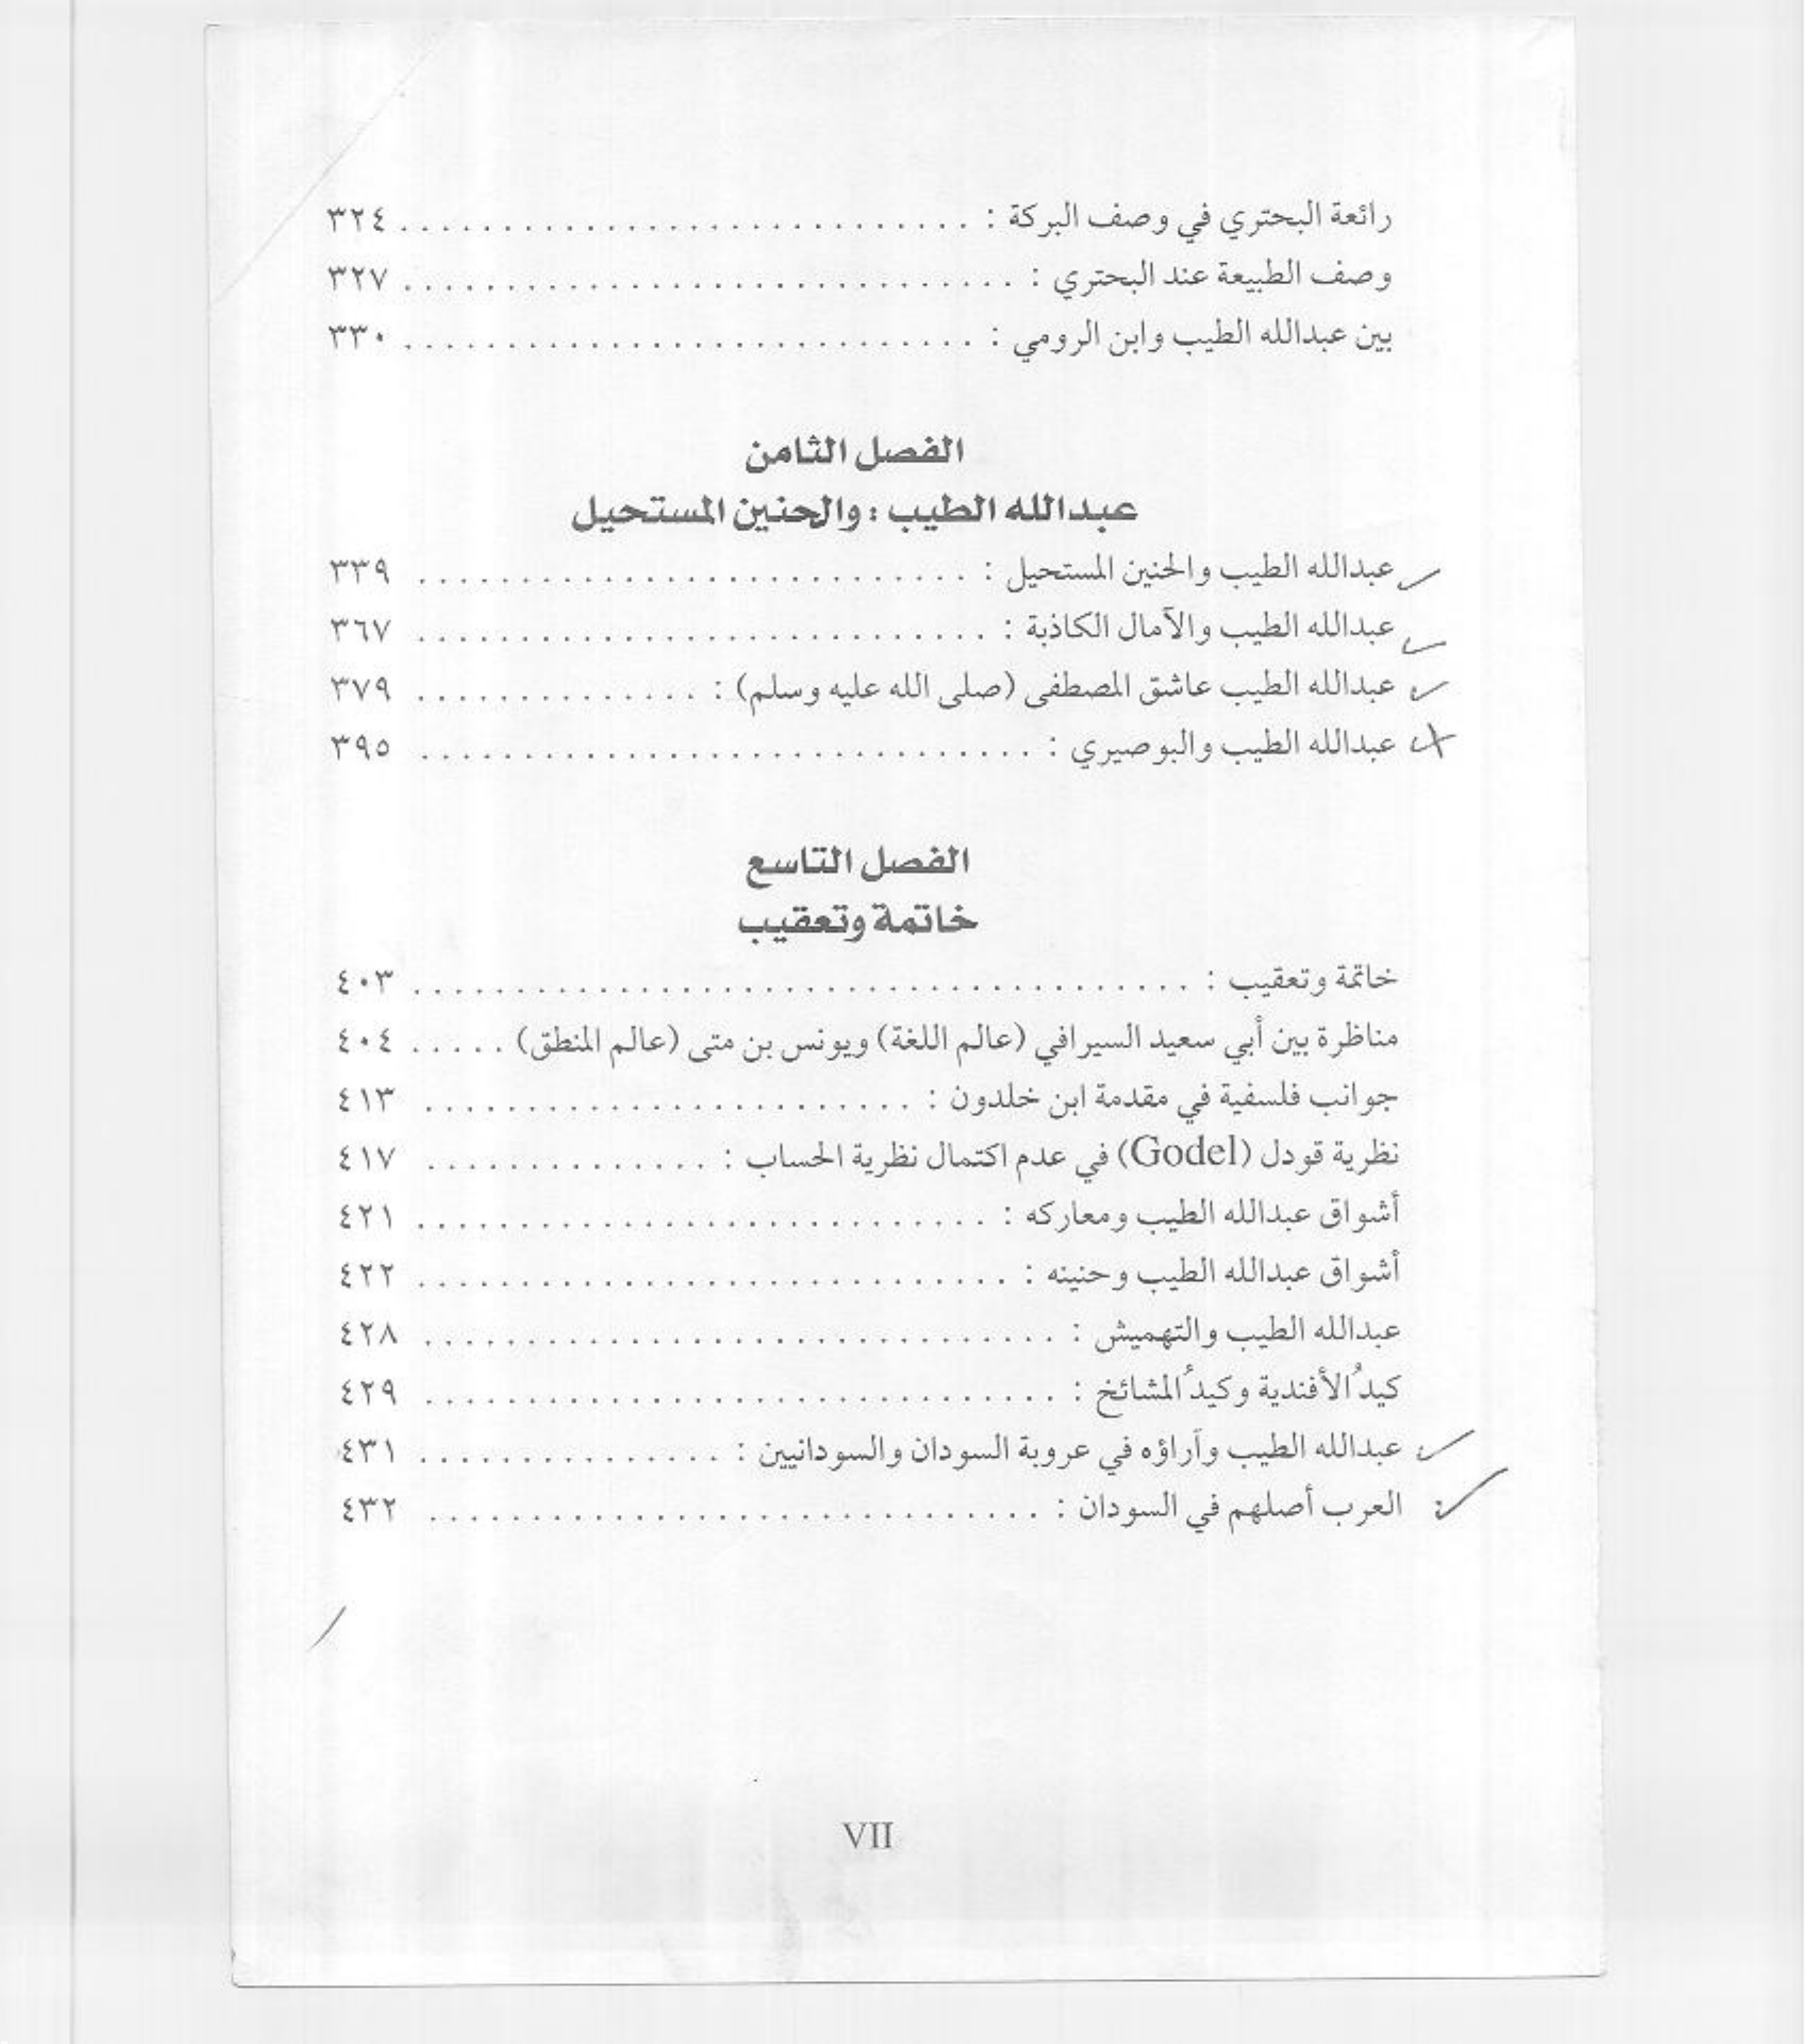 رائعة البحتري في وصف البركة : . . . . . . . . . . . . . . . . . . . . . . . . . . . . ٣٢٤
وصف الطبيعة عند البحتري : . . . . . . . . . . . . . . . . . . . . . . . . . . . . . . ٣٢٧
بين عبدالله الطيب وابن الرومي : . . . . . . . . . . . . . . . . . . . . . . . . . . . . ٣٣٠
الفصل الثامن
عبدالله الطيب : والحنين المستحيل
عبدالله الطيب والحنين المستحيل : . . . . . . . . . . . . . . . . . . . . . . . . . . . ٣٣٩
عبدالله الطيب والآمال الكاذبة : . . . . . . . . . . . . . . . . . . . . . . . . . . . . ٣٦٧
عبدالله الطيب عاشق المصطفى (صلى الله عليه وسلم) : . . . . . . . . . . . . . . ٣٧٩
عبدالله الطيب والبوصيري : . . . . . . . . . . . . . . . . . . . . . . . . . . . . . . ٣٩٥
الفصل التاسع
خاتمة وتعقيب
خاتمة وتعقيب : . . . . . . . . . . . . . . . . . . . . . . . . . . . . . . . . . . . . . . ٤٠٣
مناظرة بين أبي سعيد السيرافي (عالم اللغة) ويونس بن متى (عالم المنطق) . . . . . ٤٠٤
جوانب فلسفية في مقدمة ابن خلدون : . . . . . . . . . . . . . . . . . . . . . . . . ٤١٣
نظرية قودل (Godel) في عدم اكتمال نظرية الحساب : . . . . . . . . . . . . . . ٤١٧
أشواق عبدالله الطيب ومعاركه : . . . . . . . . . . . . . . . . . . . . . . . . . . . . ٤٢١
أشواق عبدالله الطيب وحنينه : . . . . . . . . . . . . . . . . . . . . . . . . . . . . . ٤٢٢
عبدالله الطيب والتهميش : . . . . . . . . . . . . . . . . . . . . . . . . . . . . . . . ٤٢٨
كيدُ الأفندية وكيدُ المشائخ : . . . . . . . . . . . . . . . . . . . . . . . . . . . . . . . ٤٢٩
عبدالله الطيب وآراؤه في عروبة السودان والسودانيين : . . . . . . . . . . . . . . . ٤٣١
العرب أصلهم في السودان : . . . . . . . . . . . . . . . . . . . . . . . . . . . . . . ٤٣٢
VII